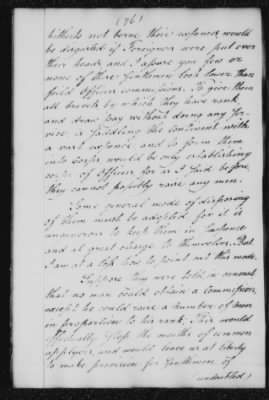 (76)
hitherto not borne their expences, would
be disgusted if Foreigners were put over
their heads and I assure you few or
none of these Gentlemen look lower than
field Officers commissions. To give them
all brevets by which they have rank
and draw pay without doing any Ser-
vice is saddling the Continent with
a vast expence and to form them
into corps would be only establishing
corps of Officers for as I said before
they cannot possibly raise any men.
Some general mode of disposing
of them must be adopted for it is
ungenerous to keep them in suspence
and at great charge to themselves. But
I am at a loss how to point out this mode.
Suppose they were told in general
that no man could obtain a Commission
except he could raise a number of men
in proportion to his rank. This would
effectually stop the mouths of common
applyers, and would leave us at liberty
to make provision for Gentlemen of
undoubted